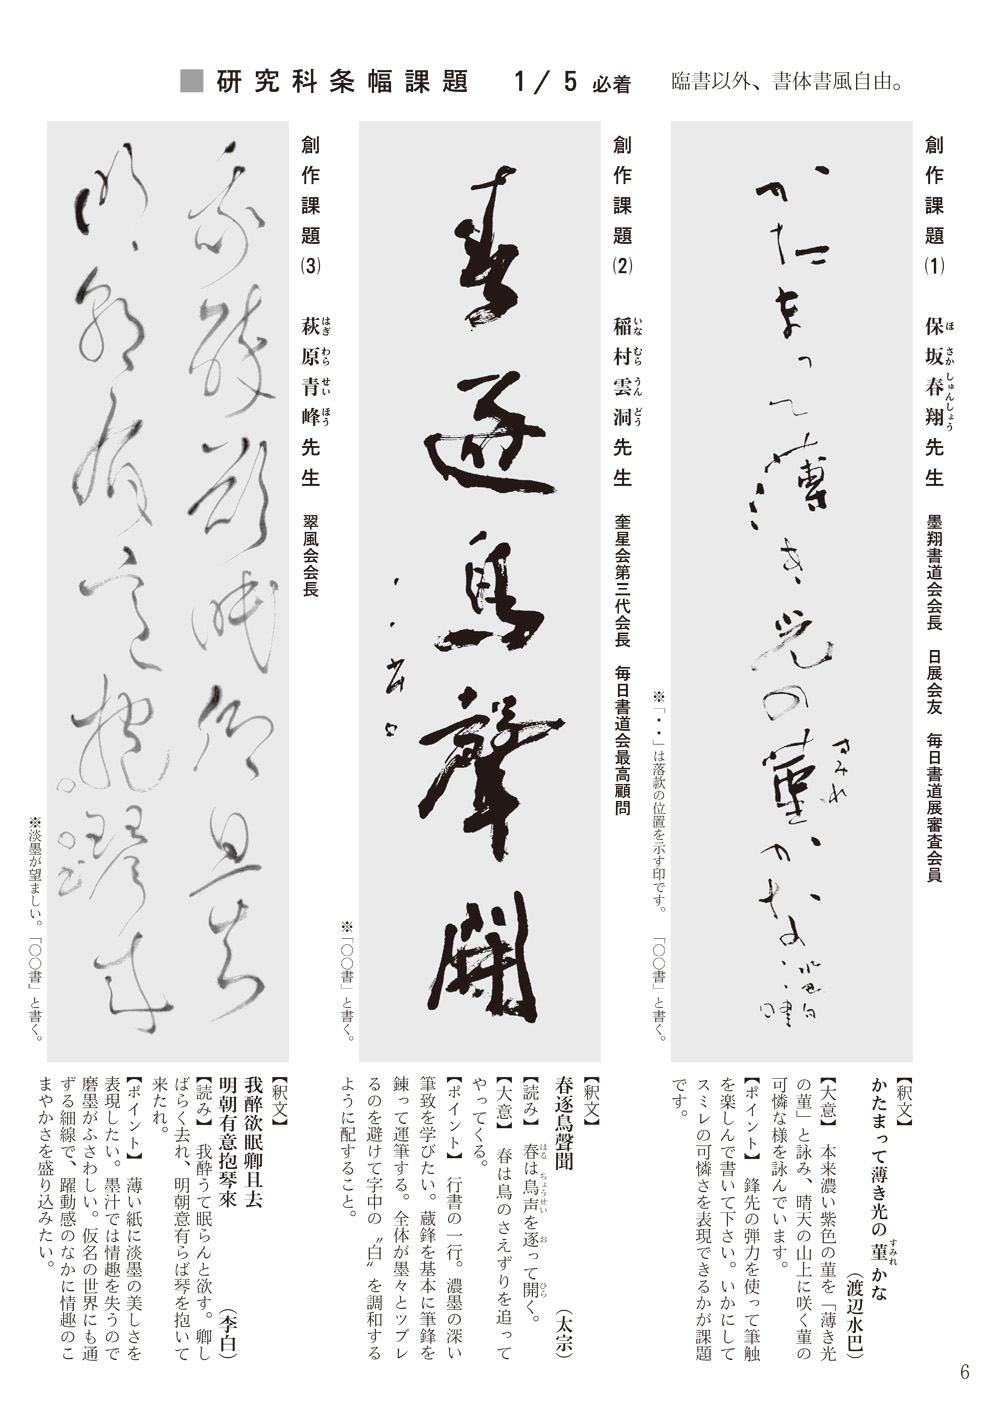 ■研究科条幅課題　1/5 必着　臨書以外、書体書風自由。
創作課題(1)　保坂春翔先生　墨翔書道会会長　日展会友　毎日書道展審査会員
ほ　さか　しゅんしょう
かたまって薄き光の菫かな
すみれ
水巴句
※「・・」は落款の位置を示す印です。　「〇〇書」と書く。
【釈文】
かたまって薄き光の菫かな
すみれ
（渡辺水巴）
【大意】　本来濃い紫色の菫を「薄き光
の菫」と詠み、晴天の山上に咲く菫の
可憐な様を詠んでいます。
【ポイント】　鋒先の弾力を使って筆触
を楽しんで書いて下さい。いかにして
スミレの可憐さを表現できるかが課題
です。
創作課題(2)　稲村雲洞先生　奎星会第三代会長　毎日書道会最高顧問
いな　むら　うん　どう
春逐鳥聲開
※「〇〇書」と書く。
【釈文】
春逐鳥聲開
（太宗）
【読み】　春は鳥声を逐って開く。
はる　ちょうせい　お　ひら
【大意】　春は鳥のさえずりを追って
やってくる。
【ポイント】　行書の一行。濃墨の深い
筆致を学びたい。蔵鋒を基本に筆鋒を
錬って運筆する。全体が墨々とツブレ
るのを避けて字中の〝白〟を調和する
ように配すること。
創作課題(3)　萩原青峰先生　翠風会会長
はぎ　わら　せい　ほう
我醉欲眠卿且去
明朝有意抱琴來
※淡墨が望ましい。「〇〇書」と書く。
【釈文】
我醉欲眠卿且去
明朝有意抱琴來
（李白）
【読み】　我酔うて眠らんと欲す。卿し
ばらく去れ、明朝意有らば琴を抱いて
来たれ。
【ポイント】　薄い紙に淡墨の美しさを
表現したい。墨汁では情趣を失うので
磨墨がふさわしい。仮名の世界にも通
ずる細線で、躍動感のなかに情趣のこ
まやかさを盛り込みたい。
6